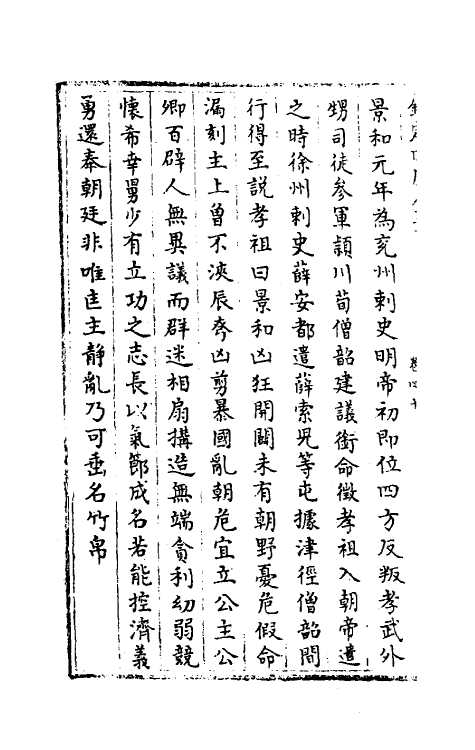 景和元年為兖州剌史明帝初即位四方反叛孝武外
甥司徒參軍頴川荀僧韶建議銜命徴孝祖入朝帝遣
之時徐州剌史薛安都遣薛索兒等屯據津徑僧韶間
行得至説孝祖曰景和凶狂開闢未有朝野憂危假命
漏刻主上曾不浹辰夸凶剪暴國亂朝危宜立公主公
卿百辟人無異議而群迷相扇搆造無端貪利㓜弱競
懷希幸舅少有立功之志長以氣節成名若能控濟義
勇還奉朝廷非唯匡主静亂乃可垂名竹帛
卷四十